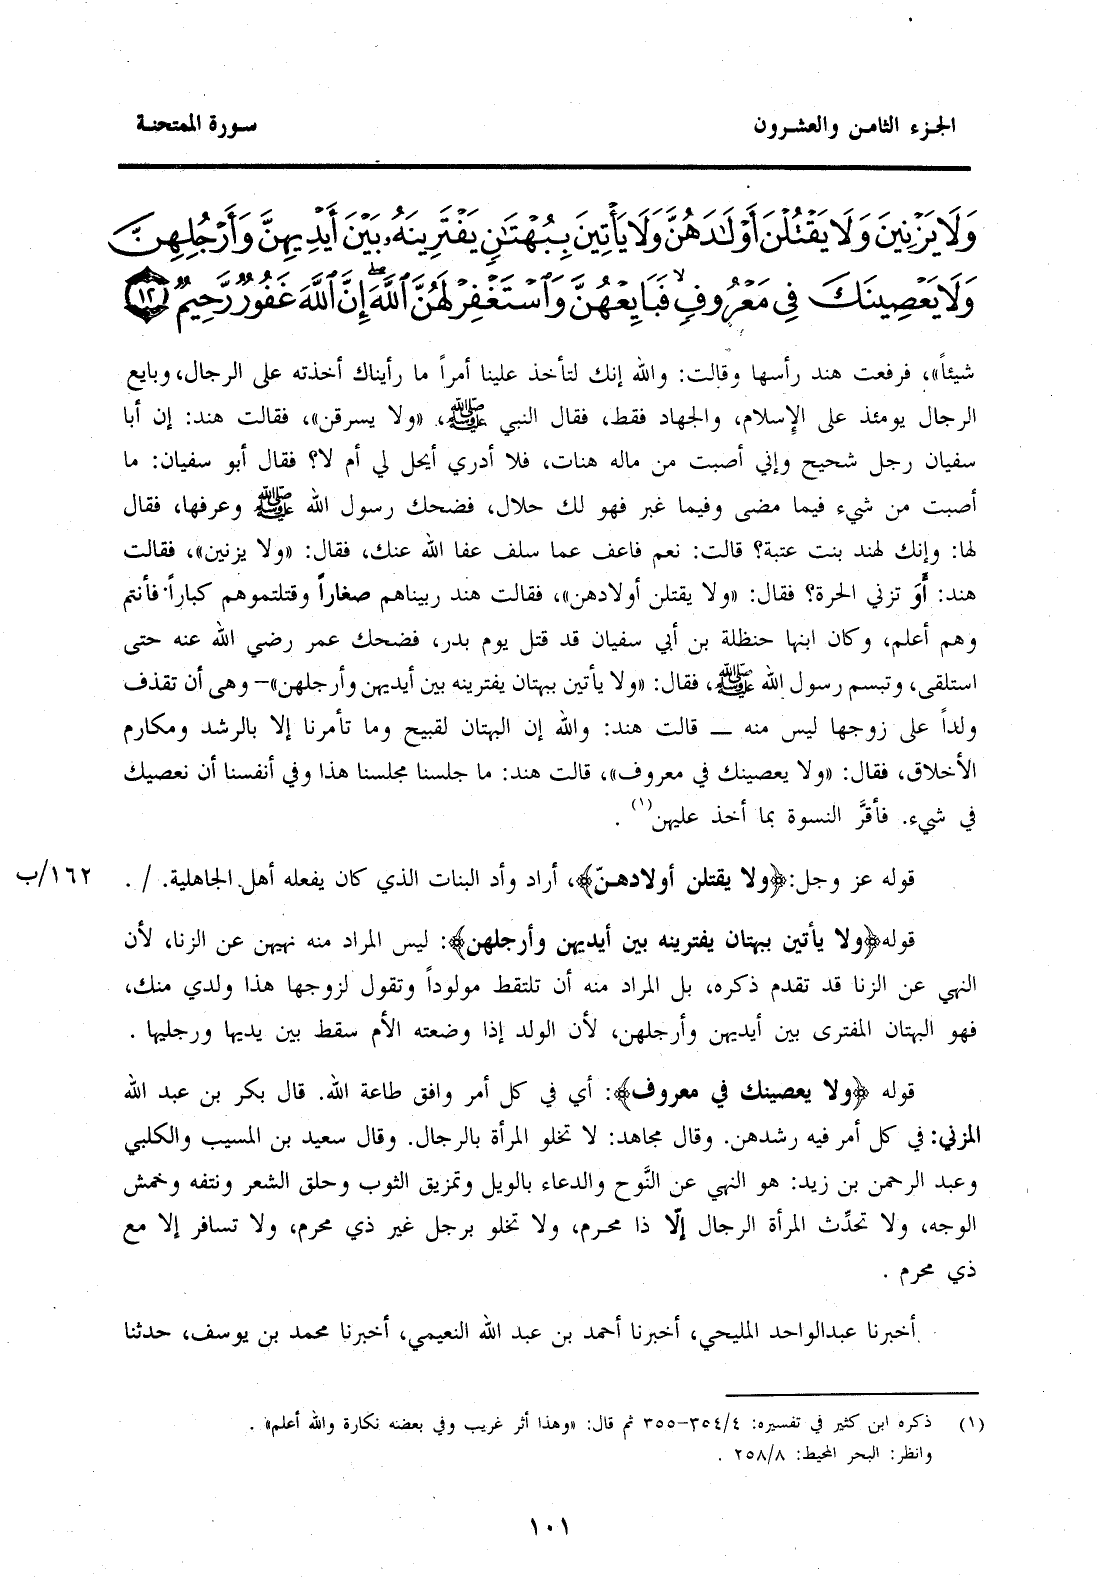 الجزء الثامن والعشرون
سورة الممتحنة
وَلَا يَزْنِينَ وَلَا يَقْتُلْنَ أَوْلَٰدَهُنَّ وَلَا يَأْتِينَ بِبُهْتَٰنٍ يَفْتَرِينَهُۥ بَيْنَ أَيْدِيهِنَّ وَأَرْجُلِهِنَّ
وَلَا يَعْصِينَكَ فِى مَعْرُوفٍ ۙ فَبَايِعْهُنَّ وَٱسْتَغْفِرْ لَهُنَّ ٱللَّهَ ۖ إِنَّ ٱللَّهَ غَفُورٌ رَّحِيمٌ ١٢
شيئاً»، فرفعت هند رأسها وقالت: والله إنك لتأخذ علينا أمراً ما رأيناك أخذته على الرجال، وبايع
الرجال يومئذ على الإسلام، والجهاد فقط، فقال النبي ﷺ، «ولا يسرقن»، فقالت هند: إن أبا
سفيان رجل شحيح وإني أصبت من ماله هنات، فلا أدري أيحل لي أم لا؟ فقال أبو سفيان: ما
أصبت من شيء فيما مضى وفيما غبر فهو لك حلال، فضحك رسول الله ﷺ وعرفها، فقال
لها: وإنك لهند بنت عتبة؟ قالت: نعم فاعف عما سلف عفا الله عنك، فقال: «ولا يزنين»، فقالت
هند: أَوَ تزني الحرة؟ فقال: «ولا يقتلن أولادهن»، فقالت هند ربيناهم صغاراً وقتلتموهم كباراً فأنتم
وهم أعلم، وكان ابنها حنظلة بن أبي سفيان قد قتل يوم بدر، فضحك عمر رضي الله عنه حتى
استلقى، وتبسم رسول الله ﷺ، فقال: «ولا يأتين ببهتان يفترينه بين أيديهن وأرجلهن» – وهى أن تقذف
ولداً على زوجها ليس منه — قالت هند: والله إن البهتان لقبيح وما تأمرنا إلا بالرشد ومكارم
الأخلاق، فقال: «ولا يعصينك في معروف»، قالت هند: ما جلسنا مجلسنا هذا وفي أنفسنا أن نعصيك
في شيء. فأقرَّ النسوة بما أخذ عليهن(١) .
قوله عز وجل: ﴿ولا يقتلن أولادهنّ﴾، أراد وأد البنات الذي كان يفعله أهل الجاهلية. / .
١٦٢/ب
قوله ﴿ولا يأتين ببهتان يفترينه بين أيديهن وأرجلهن﴾: ليس المراد منه نهيهن عن الزنا، لأن
النهي عن الزنا قد تقدم ذكره، بل المراد منه أن تلتقط مولوداً وتقول لزوجها هذا ولدي منك،
فهو البهتان المفترى بين أيديهن وأرجلهن، لأن الولد إذا وضعته الأم سقط بين يديها ورجليها .
قوله ﴿ولا يعصينك في معروف﴾: أي في كل أمر وافق طاعة الله. قال بكر بن عبد الله
المزني: في كل أمر فيه رشدهن. وقال مجاهد: لا تخلو المرأة بالرجال. وقال سعيد بن المسيب والكلبي
وعبد الرحمن بن زيد: هو النهي عن النَّوح والدعاء بالويل وتمزيق الثوب وحلق الشعر ونتفه وخمش
الوجه، ولا تحدِّث المرأة الرجال إلّا ذا محرم، ولا تخلو برجل غير ذي محرم، ولا تسافر إلا مع
ذي محرم .
أخبرنا عبدالواحد المليحي، أخبرنا أحمد بن عبد الله النعيمي، أخبرنا محمد بن يوسف، حدثنا
(١) ذكره ابن كثير في تفسيره: ٣٥٤/٤–٣٥٥ ثم قال: «وهذا أثر غريب وفي بعضه نكارة والله أعلم» .
وانظر: البحر المحيط: ٢٥٨/٨ .
١٠١